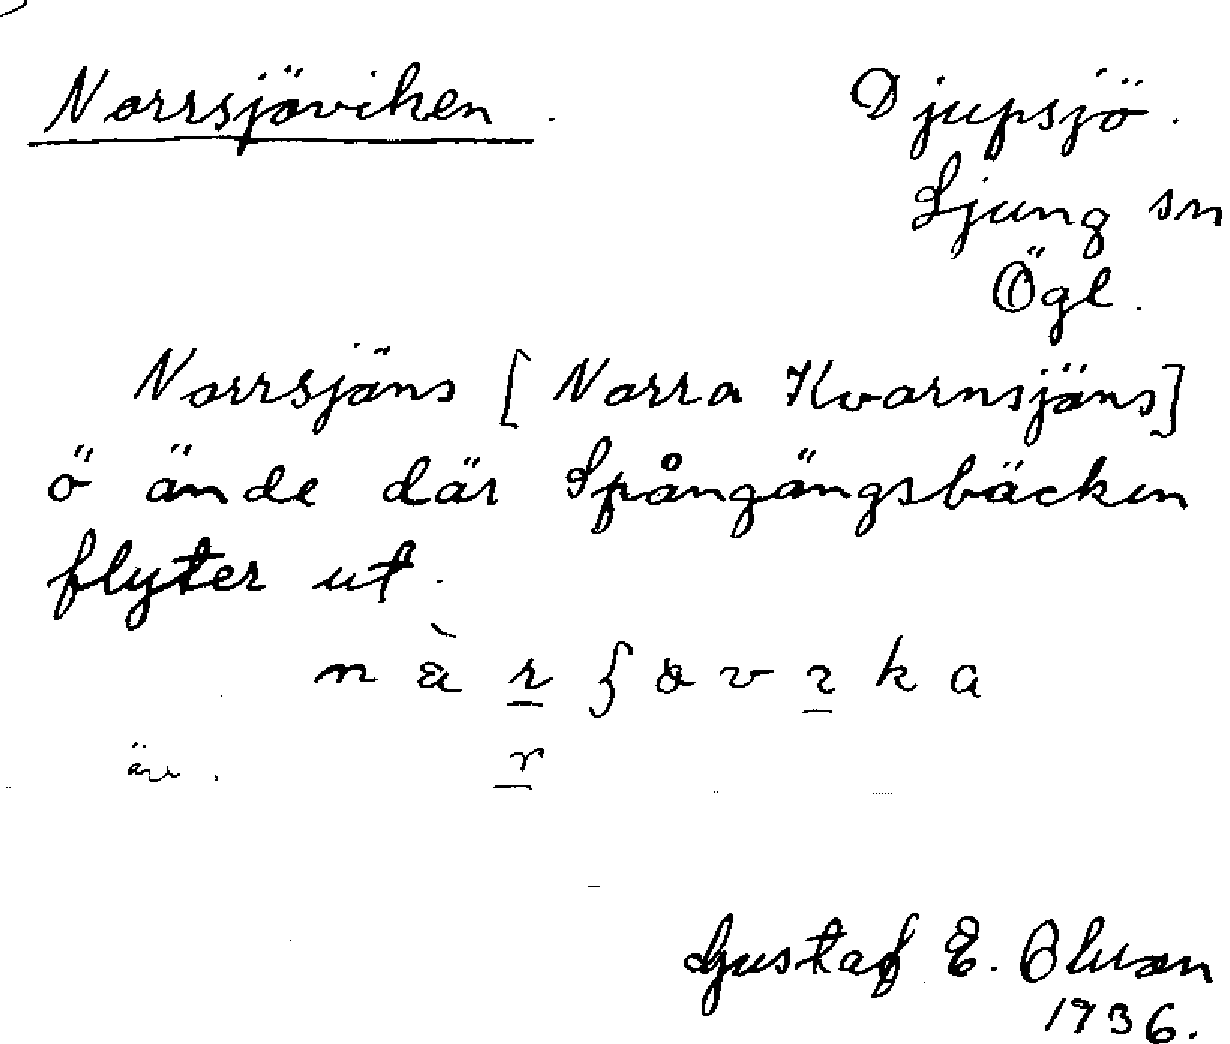 Norrsjöviken.
Djupsjö.
Ljung sn
Ögl.
Norrsjöns [Norra Kvarnsjöns]
ö ände där Spångängsbäcken
flyter ut.
Gustaf E. Olsson
1936.